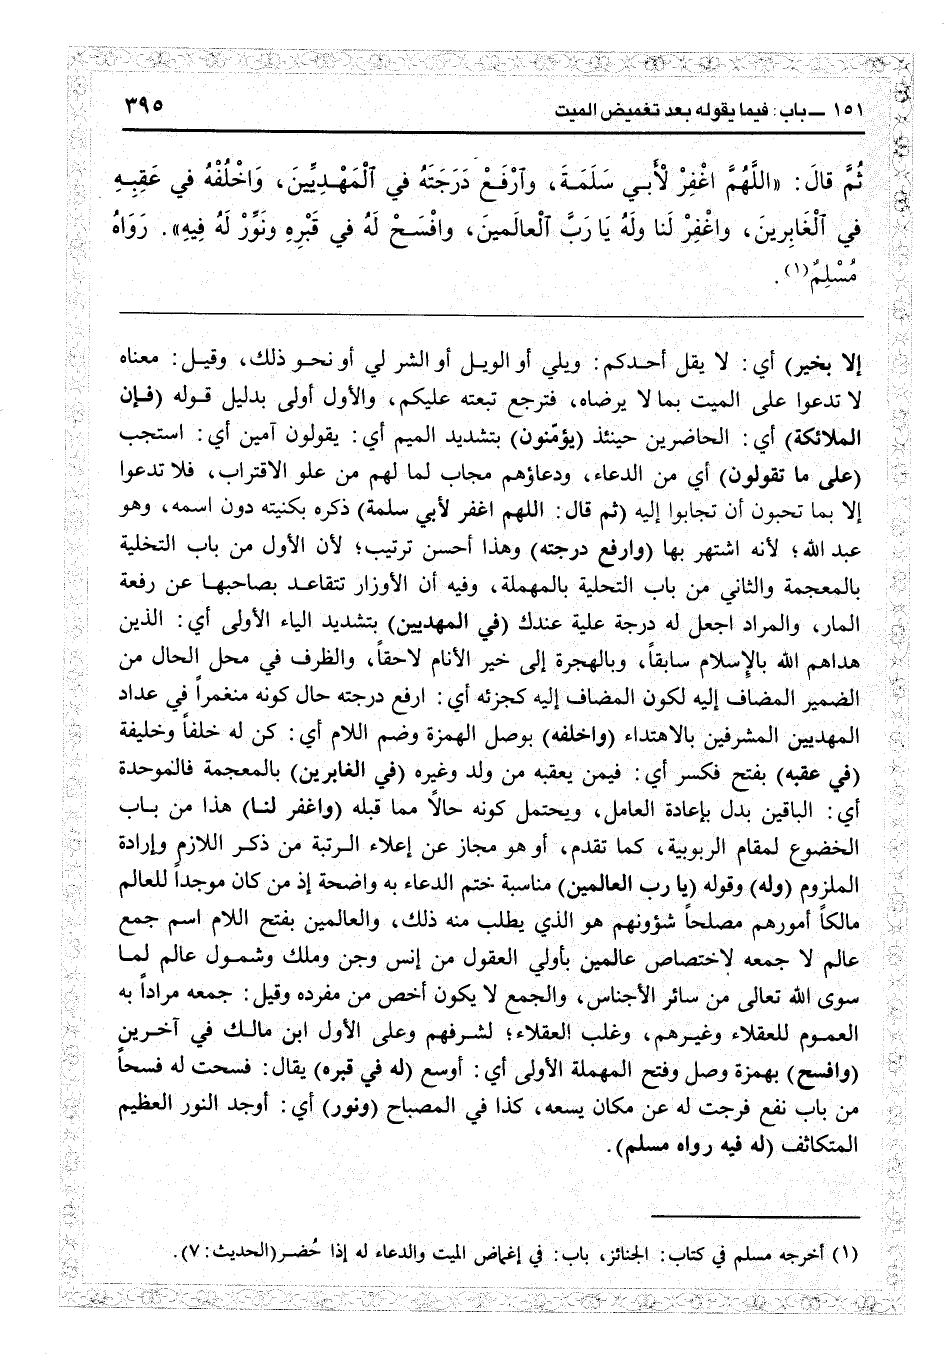 ١٥١ ــ باب: فيما يقوله بعد تغميض الميت
٣٩٥
ثُمَّ قالَ: «اللَّهُمَّ اغْفِرْ لأَبي سَلَمَةَ، وٱرْفَعْ دَرَجَتَهُ في ٱلْمَهْدِيِّينَ، وَاخْلُفْهُ في عَقِبِهِ
في ٱلْغَابِرينَ، واغْفِرْ لَنا ولَهُ يَا رَبَّ ٱلْعالَمينَ، وافْسَحْ لَهُ في قَبْرِهِ ونَوِّرْ لَهُ فِيهِ». رَوَاهُ
مُسْلِمٌ(١).
إلا بخير) أي: لا يقل أحدكم: ويلي أو الويل أو الشر لي أو نحو ذلك، وقيل: معناه
لا تدعوا على الميت بما لا يرضاه، فترجع تبعته عليكم، والأول أولى بدليل قوله (فإن
الملائكة) أي: الحاضرين حينئذ (يؤمّنون) بتشديد الميم أي: يقولون آمين أي: استجب
(على ما تقولون) أي من الدعاء، ودعاؤهم مجاب لما لهم من علو الاقتراب، فلا تدعوا
إلا بما تحبون أن تجابوا إليه (ثم قال: اللهم اغفر لأبي سلمة) ذكره بكنيته دون اسمه، وهو
عبد الله؛ لأنه اشتهر بها (وارفع درجته) وهذا أحسن ترتيب؛ لأن الأول من باب التخلية
بالمعجمة والثاني من باب التحلية بالمهملة، وفيه أن الأوزار تتقاعد بصاحبها عن رفعة
المار، والمراد اجعل له درجة علية عندك (في المهديين) بتشديد الياء الأولى أي: الذين
هداهم الله بالإسلام سابقاً، وبالهجرة إلى خير الأنام لاحقاً، والظرف في محل الحال من
الضمير المضاف إليه لكون المضاف إليه كجزئه أي: ارفع درجته حال كونه منغمراً في عداد
المهديين المشرفين بالاهتداء (واخلفه) بوصل الهمزة وضم اللام أي: كن له خلفاً وخليفة
(في عقبه) بفتح فكسر أي: فيمن يعقبه من ولد وغيره (في الغابرين) بالمعجمة فالموحدة
أي: الباقين بدل بإعادة العامل، ويحتمل كونه حالاً مما قبله (واغفر لنا) هذا من باب
الخضوع لمقام الربوبية، كما تقدم، أو هو مجاز عن إعلاء الرتبة من ذكر اللازم وإرادة
الملزوم (وله) وقوله (يا رب العالمين) مناسبة ختم الدعاء به واضحة إذ من كان موجداً للعالم
مالكاً أمورهم مصلحاً شؤونهم هو الذي يطلب منه ذلك، والعالمين بفتح اللام اسم جمع
عالم لا جمعه لاختصاص عالمين بأولي العقول من إنس وجن وملك وشمول عالم لما
سوى الله تعالى من سائر الأجناس، والجمع لا يكون أخص من مفرده وقيل: جمعه مراداً به
العموم للعقلاء وغيرهم، وغلب العقلاء؛ لشرفهم وعلى الأول ابن مالك في آخرين
(وافسح) بهمزة وصل وفتح المهملة الأولى أي: أوسع (له في قبره) يقال: فسحت له فسحاً
من باب نفع فرجت له عن مكان يسعه، كذا في المصباح (ونور) أي: أوجد النور العظيم
المتكاثف (له فيه رواه مسلم).
(١) أخرجه مسلم في كتاب: الجنائز، باب: في إغماض الميت والدعاء له إذا حُضر (الحديث: ٧).